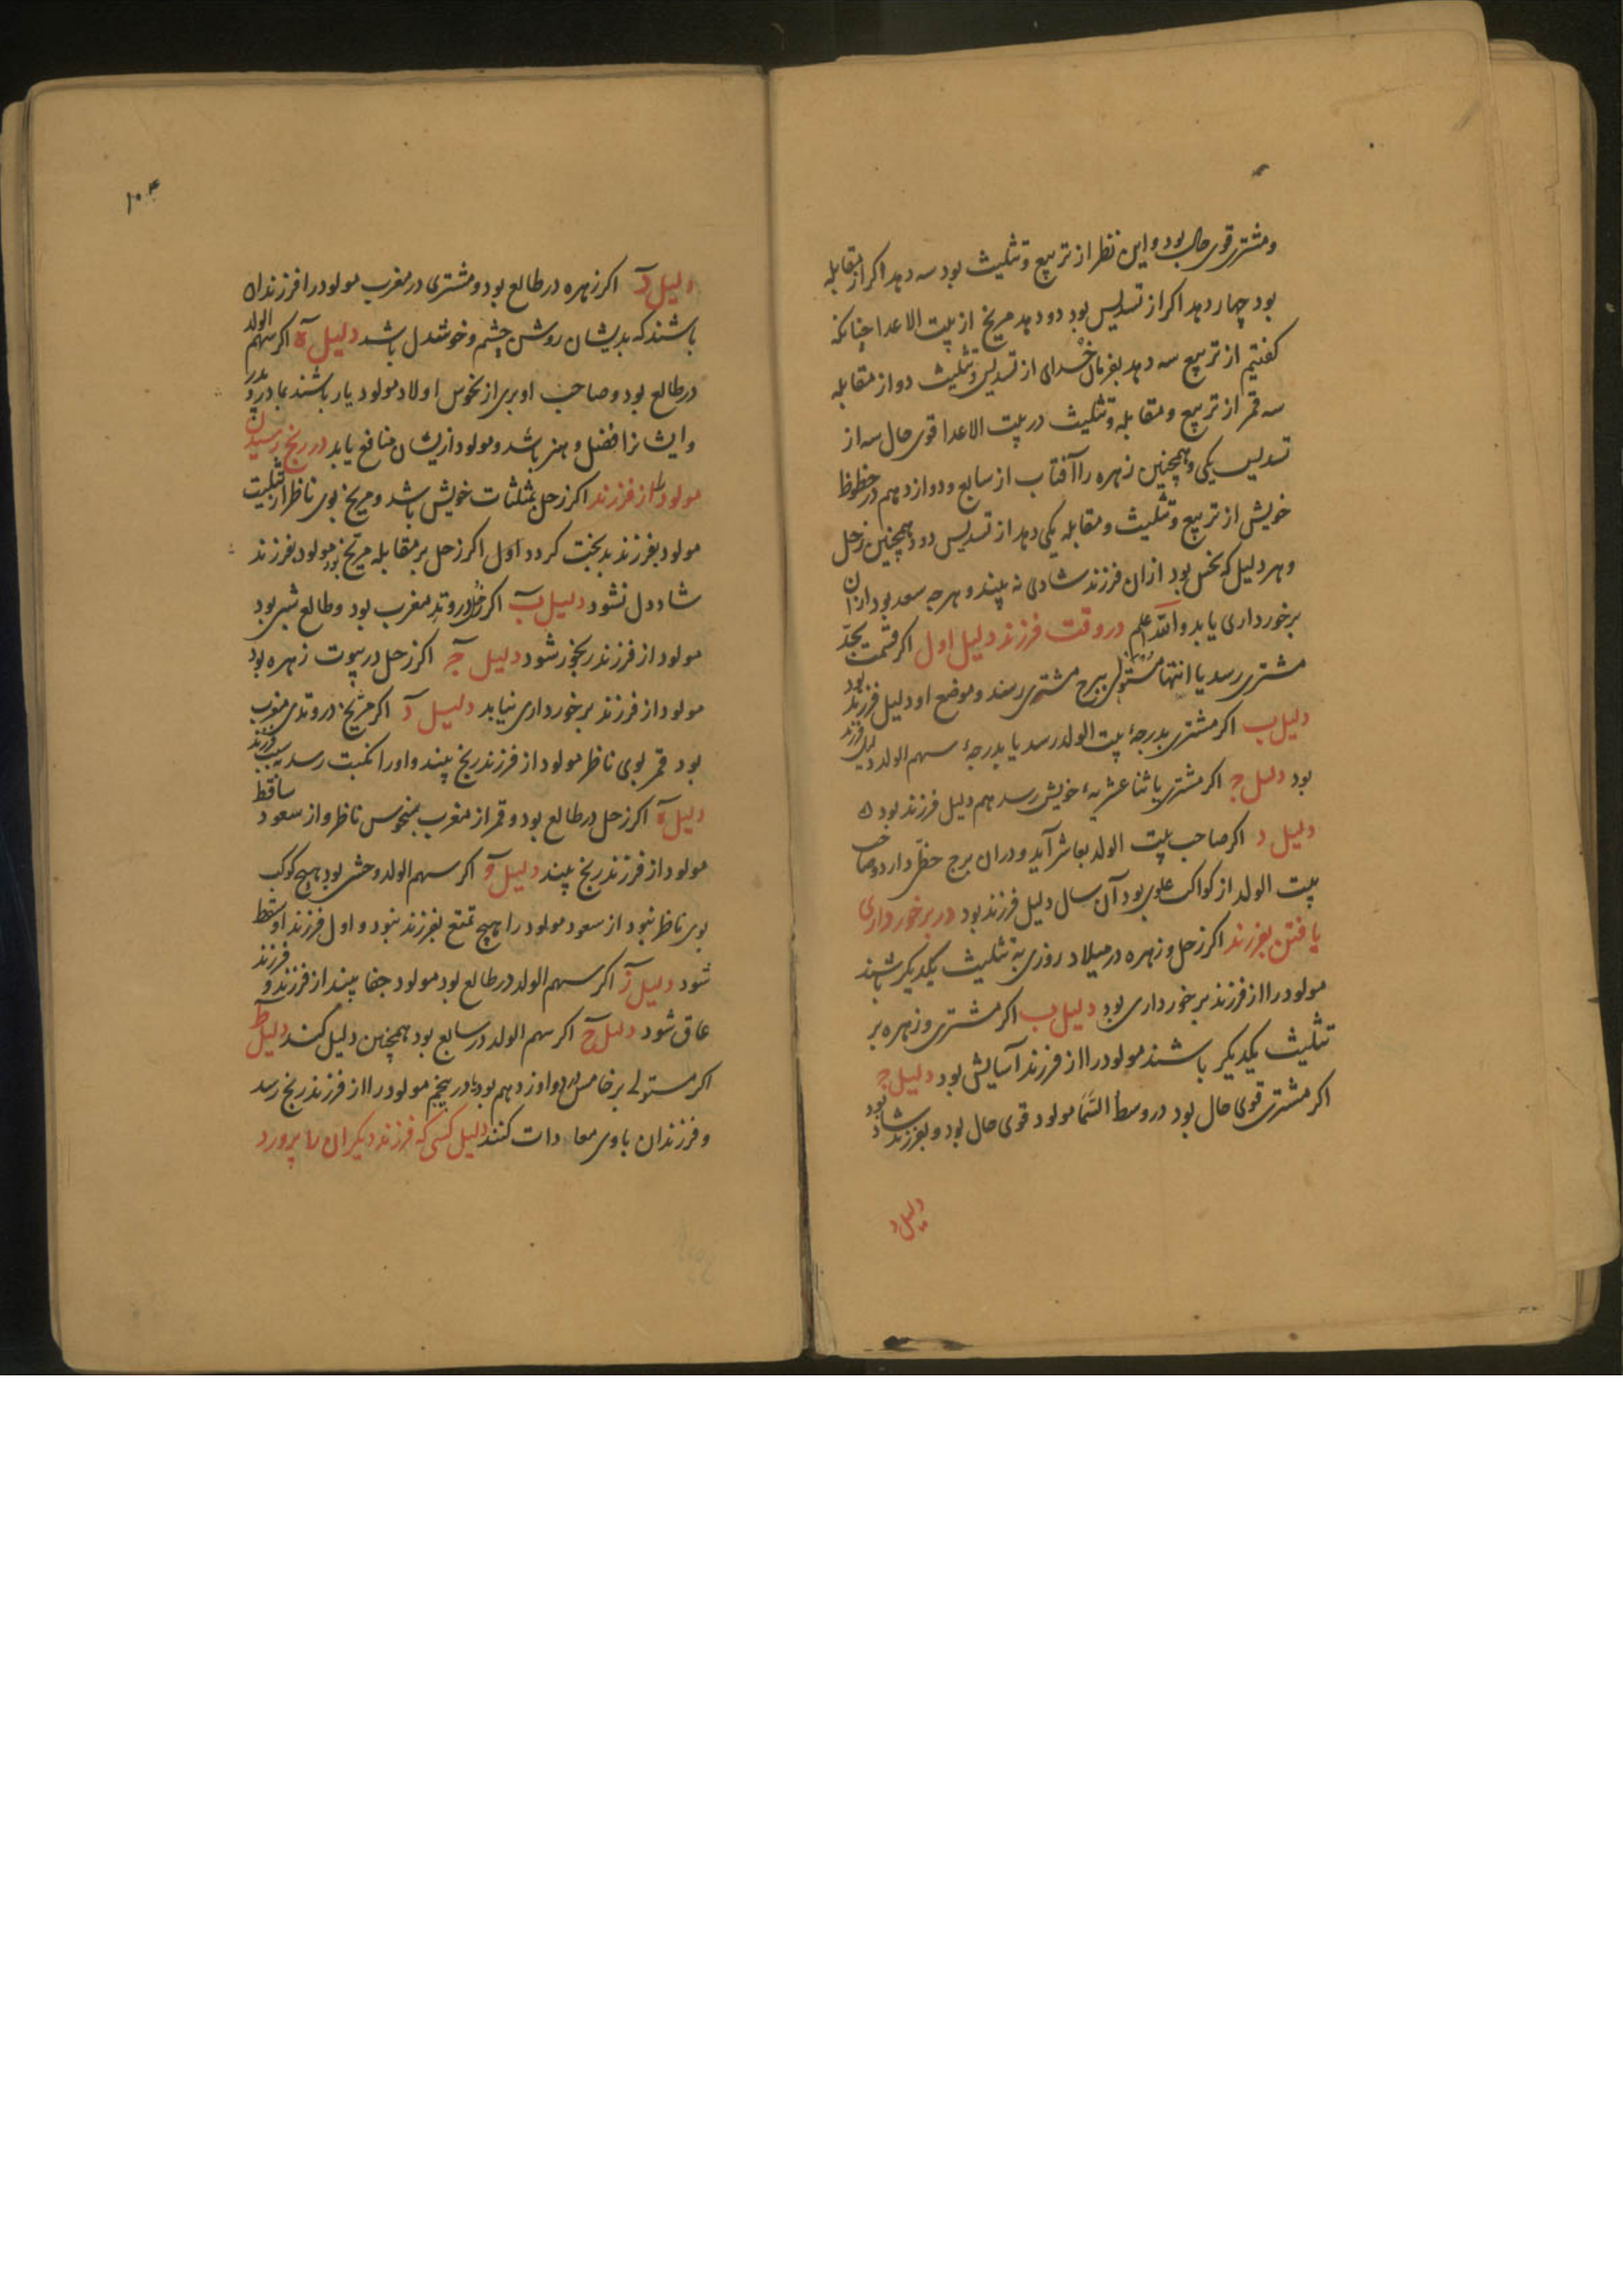 و مشتری قوی حال بود و این نظر از تربیع و تثلیث بود سه دهد اکر از مقابله
بود چهار دهد اکر از تسدیس بود دو دهد مریخ از بیت الاعدا چنانکه
کفتیم از تربیع سه دهد بفرمان خدای از تسدیس و تثلیث دو از مقابله
سه قمر از تربیع و مقابله و تثلیث در بیت الاعدا قوی حال سه از
تسدیس یکی و همچنین زهره را آفتاب از سابع و دوازدهم در حظوظ
خویش از تربیع و تثلیث و مقابله یکی دهد از تسدیس دو و همچنین زحل
و هر دلیل که نحس بود از ان فرزند شادی نه بیند و هر چه سعد بود از ان
برخورداری یابد والله اعلم در وقت فرزند دلیل اول اکر قسمت بحد
مشتری رسد یا انتها مستولی ببرج مشتری رسند و موضع او دلیل فرزند بود
دلیل ب اکر مشتری بدرجهٔ بیت الولد رسد یا بدرجهٔ سهم الولد دلیل فرزند
بود دلیل ج اکر مشتری باثنا عشریهٔ خویش رسد هم دلیل فرزند بود ه
دلیل د اکر صاحب بیت الولد بعاشر آید و در ان برج حظی دارد و صاحب
بیت الولد از کواکب علوی بود آن سال دلیل فرزند بود در برخورداری
یافتن بفرزند اکر زحل و زهره در میلاد روزی به تثلیث یکدیکر باشند
مولود را از فرزند برخورداری بود دلیل ب اکر مشتری و زهره بر
تثلیث یکدیکر باشند مولود را از فرزند آسایش بود دلیل ج
اکر مشتری قوی حال بود در وسط السّما مولود قوی حال بود و بفرزند شاد بود
دلیل د
۱۰۴
دلیل د اکر زهره در طالع بود و مشتری در مغرب مولود را فرزندان
باشند که بدیشان روشن چشم و خوشدل باشد دلیل ه اکر سهم الولد
در طالع بود و صاحب او بری از نحوس اولاد مولود یار باشند بمادر و پدر
و ایشانرا فضل و هنر باشد و مولود ازیشان منافع یابد در رنج رسیدن
مولود را از فرزند اکر زحل بمثلثات خویش باشد و مریخ بوی ناظر از تثلیث
مولود بفرزند بدبخت کردد اول اکر زحل بر مقابله مریخ بود مولود بفرزند
شاددل نشود دلیل ب اکر زحل در وتد مغرب بود و طالع شبی بود
مولود از فرزند رنجور شود دلیل ج اکر زحل در بیوت زهره بود
مولود از فرزند برخورداری نیابد دلیل د اکر مریخ در وتدی مغرب
بود قمر بوی ناظر مولود از فرزند رنج بیند و او را نکبت رسد بسبب فرزند
دلیل ه اکر زحل در طالع بود و قمر از مغرب بنحوس ناظر و از سعود ساقط
مولود از فرزند رنج بیند دلیل و اکر سهم الولد وحشی بود هیچ کوکب
بوی ناظر نبود از سعود مولود را هیچ تمتع بفرزند نبود و اول فرزند او سقط
شود دلیل ز اکر سهم الولد در طالع بود مولود جفا بیند از فرزند و فرزند
عاق شود دلیل ح اکر سهم الولد در سابع بود همچنین دلیل کند دلیل ط
اکر مستولی بر خامس در دوازدهم بود یا در پنجم مولود را از فرزند رنج رسد
و فرزندان با وی معادات کنند دلیل کسی که فرزند دیکران را پرورد